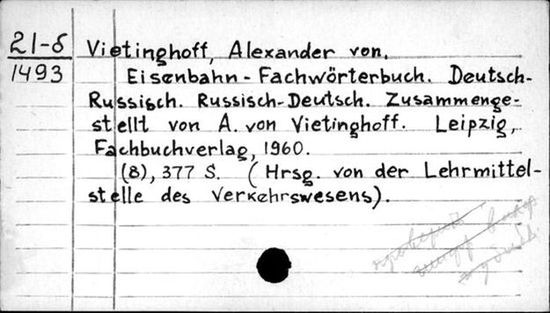 21-б
1493
Vietinghoff, Alexander von.
Eisenbahn-Fachwörterbuch. Deutsch-
Russisch. Russisch-Deutsch. Zusammenge-
stellt von A. von Vietinghoff. Leipzig,
Fachbuchverlag, 1960.
(8), 377 S. (Hrsg. von der Lehrmittel-
stelle des Verkehrswesens).